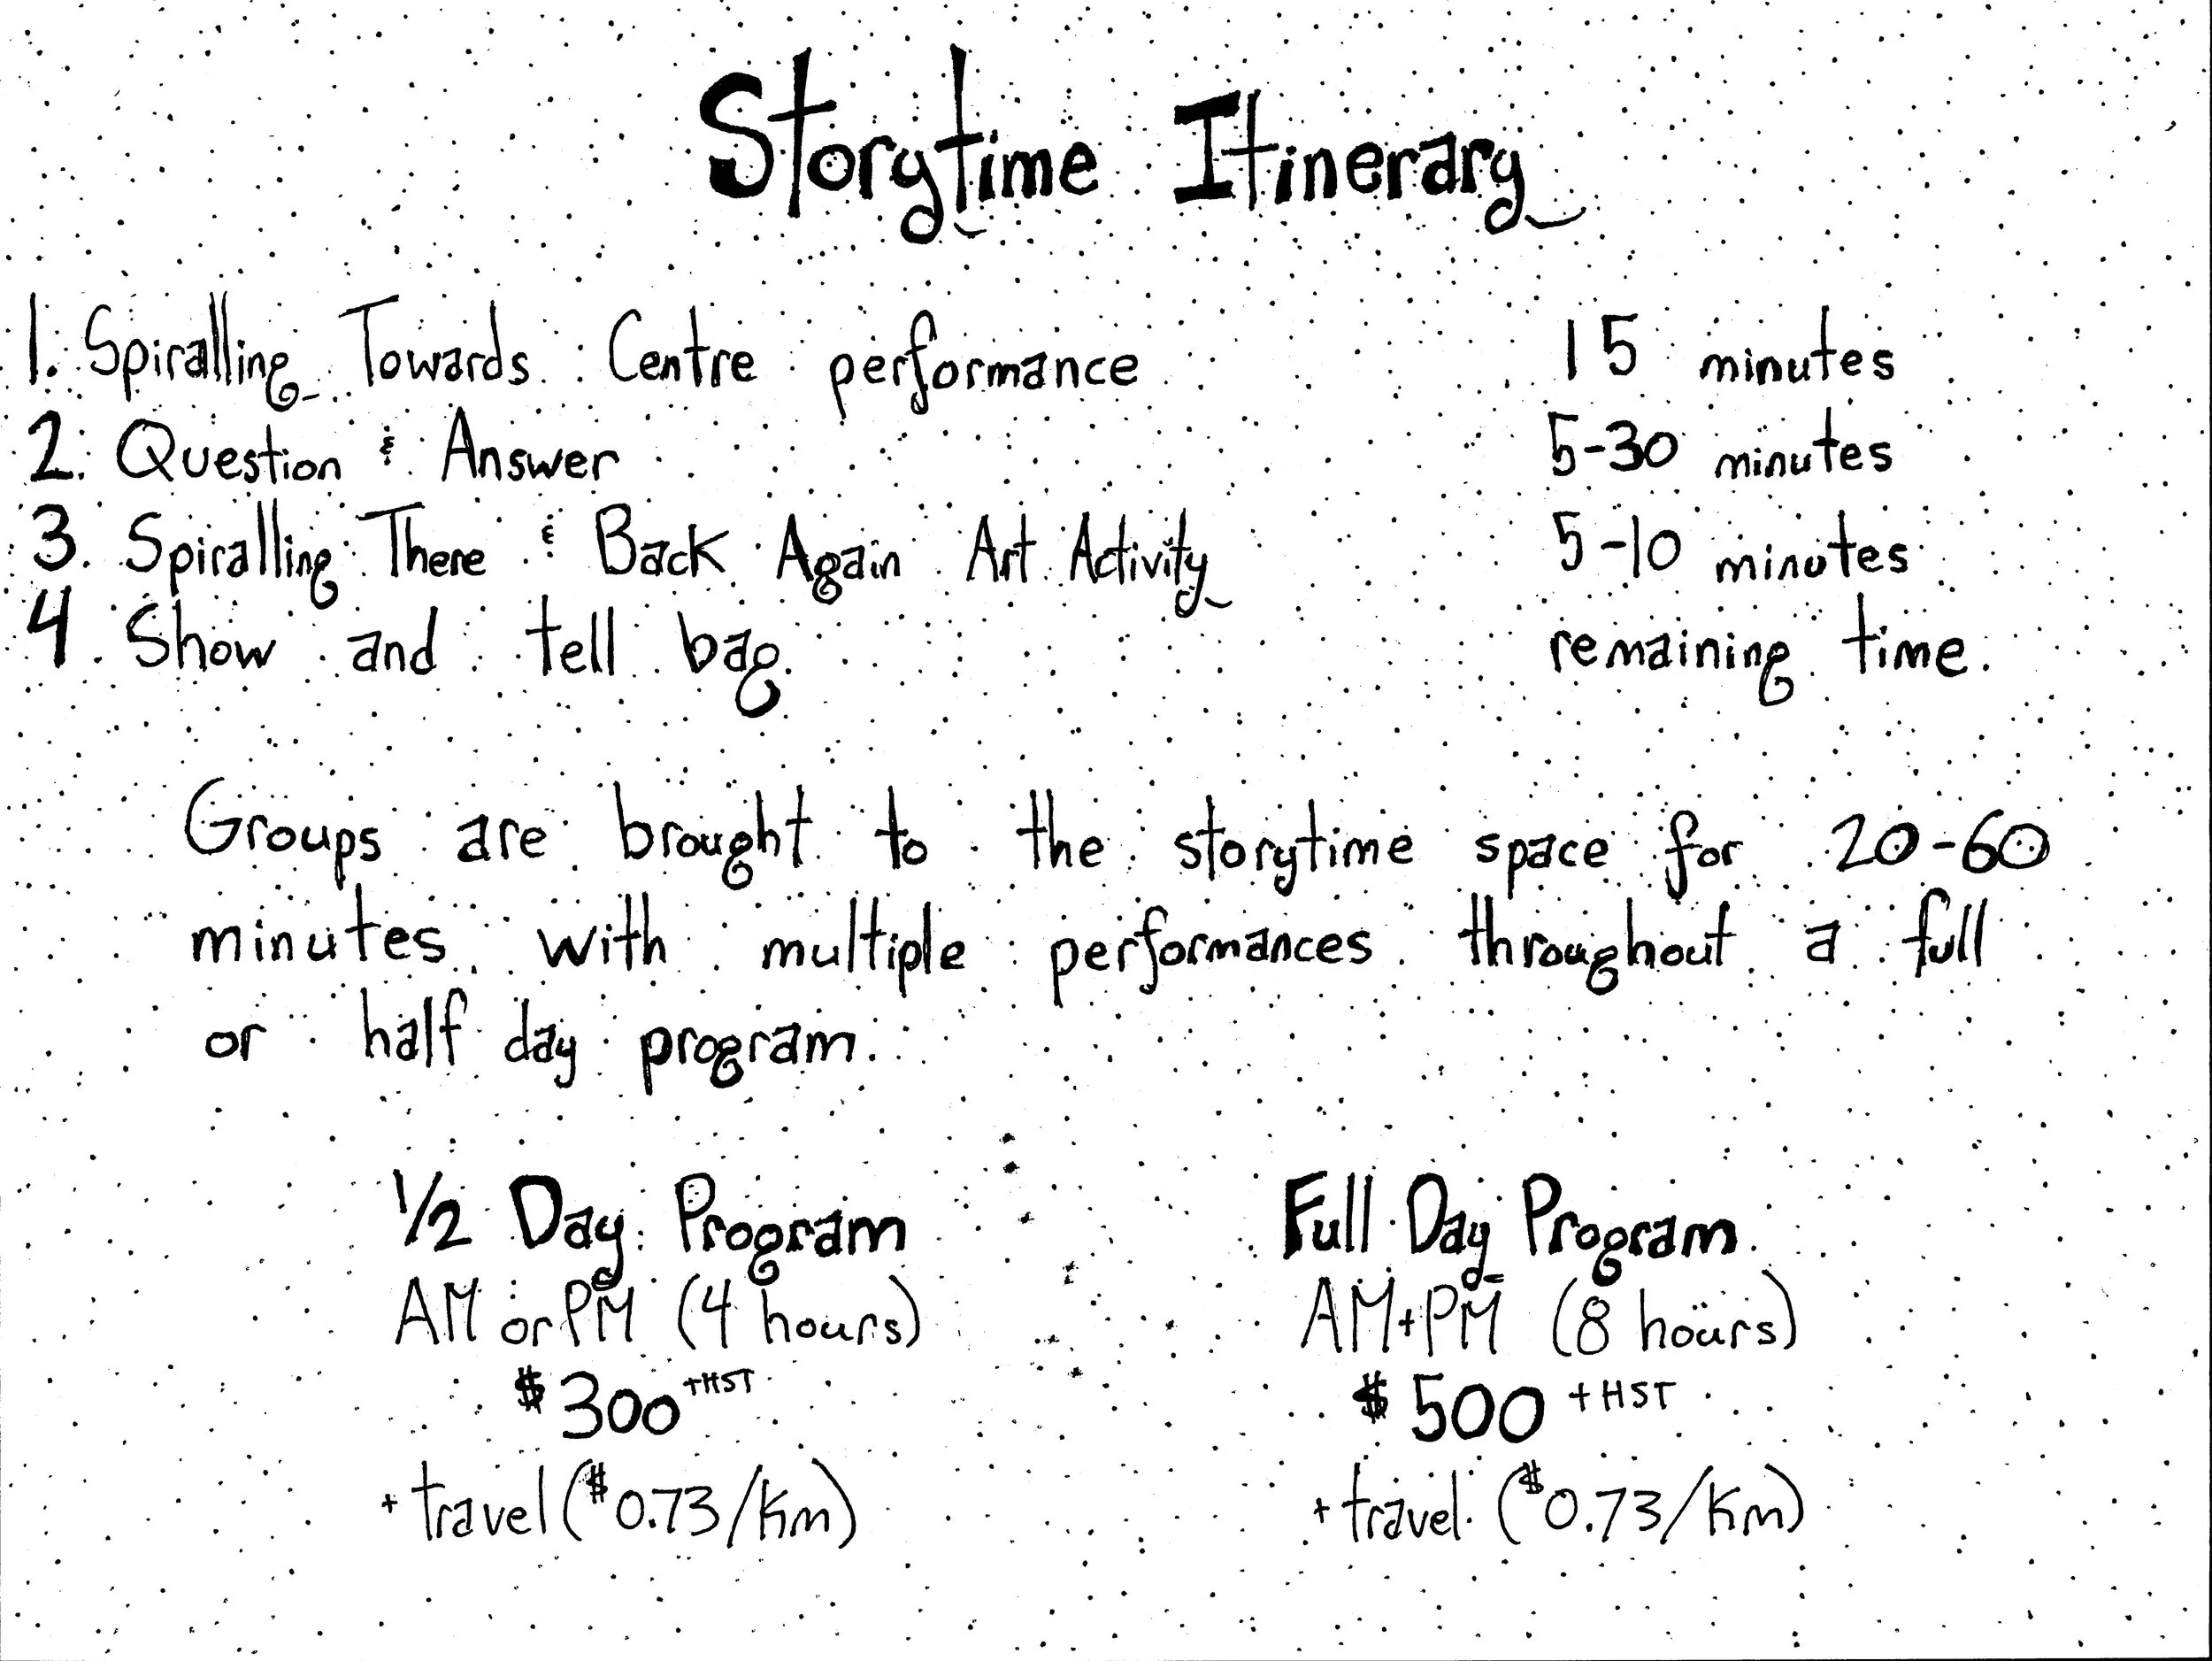 Storytime Itinerary
1. Spiralling Towards Centre performance 15 minutes
2. Question & Answer 5-30 minutes
3. Spiralling There & Back Again Art Activity 5-10 minutes
4. Show and tell bag remaining time.
Groups are brought to the storytime space for 20-60
minutes with multiple performances throughout a full
or half day program.
1/2 Day Program
AM or PM (4 hours)
$300 +HST
+ travel ($0.73/Km)
Full Day Program
AM+PM (8 hours)
$500 +HST
+ travel ($0.73/Km)